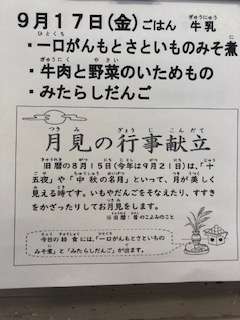 9月17日(金)ごはん 牛乳
・一口がんもとさといものみそ煮
・牛肉と野菜のいためもの
・みたらしだんご
月見の行事献立
旧暦の8月15日(今年は9月21日)は、「十
五夜」や「中秋の名月」といって、月が美しく
見える時です。いもやだんごをそなえたり、すすき
をかざったりしてお月見をします。
※旧暦:昔のこよみのこと
今日の給食には、「一口がんもとさといもの
みそ煮」と「みたらしだんご」が出ます。